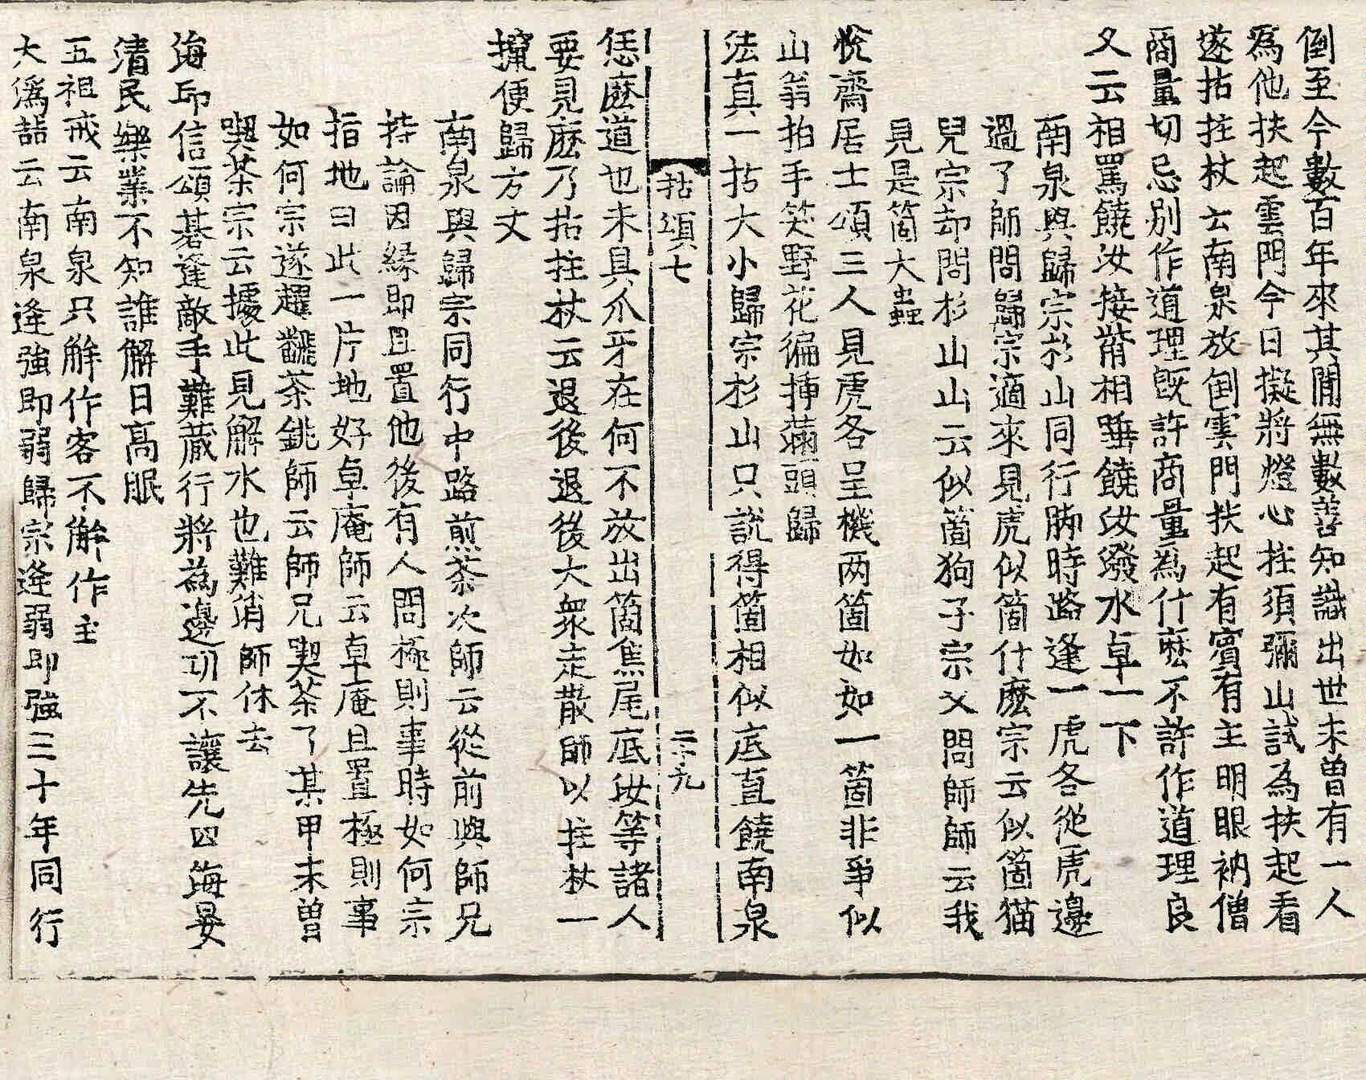 倒至今數百年來其閒無數善知識出世未曾有一人
為他扶起雲門今日擬將燈心拄須彌山試為扶起看
遂拈拄杖云南泉放倒雲門扶起有賓有主明眼衲僧
商量切忌別作道理既許商量為什麽不許作道理良
久云相罵饒汝接觜相唾饒汝潑水卓一下
南泉與歸宗杉山同行脚時路逢一虎各從虎邊
過了師問歸宗適來見虎似箇什麽宗云似箇猫
兒宗却問杉山山云似箇狗子宗又問師師云我
見是箇大蟲
悅齋居士頌三人見虎各呈機两箇如如一箇非爭似
山翁拍手笑野花徧揷滿頭歸
法真一拈大小歸宗杉山只說得箇相似底直饒南泉
拈頌七
二十九
恁麽道也未具爪牙在何不放出箇焦尾底汝等諸人
要見麽乃拈拄杖云退後退後大衆走散師以拄杖一
攛便歸方丈
南泉與歸宗同行中路煎茶次師云從前與師兄
持論因緣即且置他後有人問極則事時如何宗
指地曰此一片地好卓庵師云卓庵且置極則事
如何宗遂趯飜茶銚師云師兄喫茶了某甲未曾
喫茶宗云據此見解水也難消師休去
海印信頌碁逢敵手難藏行將為邊功不讓先四海晏
清民樂業不知誰解日高眠
五祖戒云南泉只解作客不解作主
大溈喆云南泉逢強即弱歸宗逢弱即強三十年同行